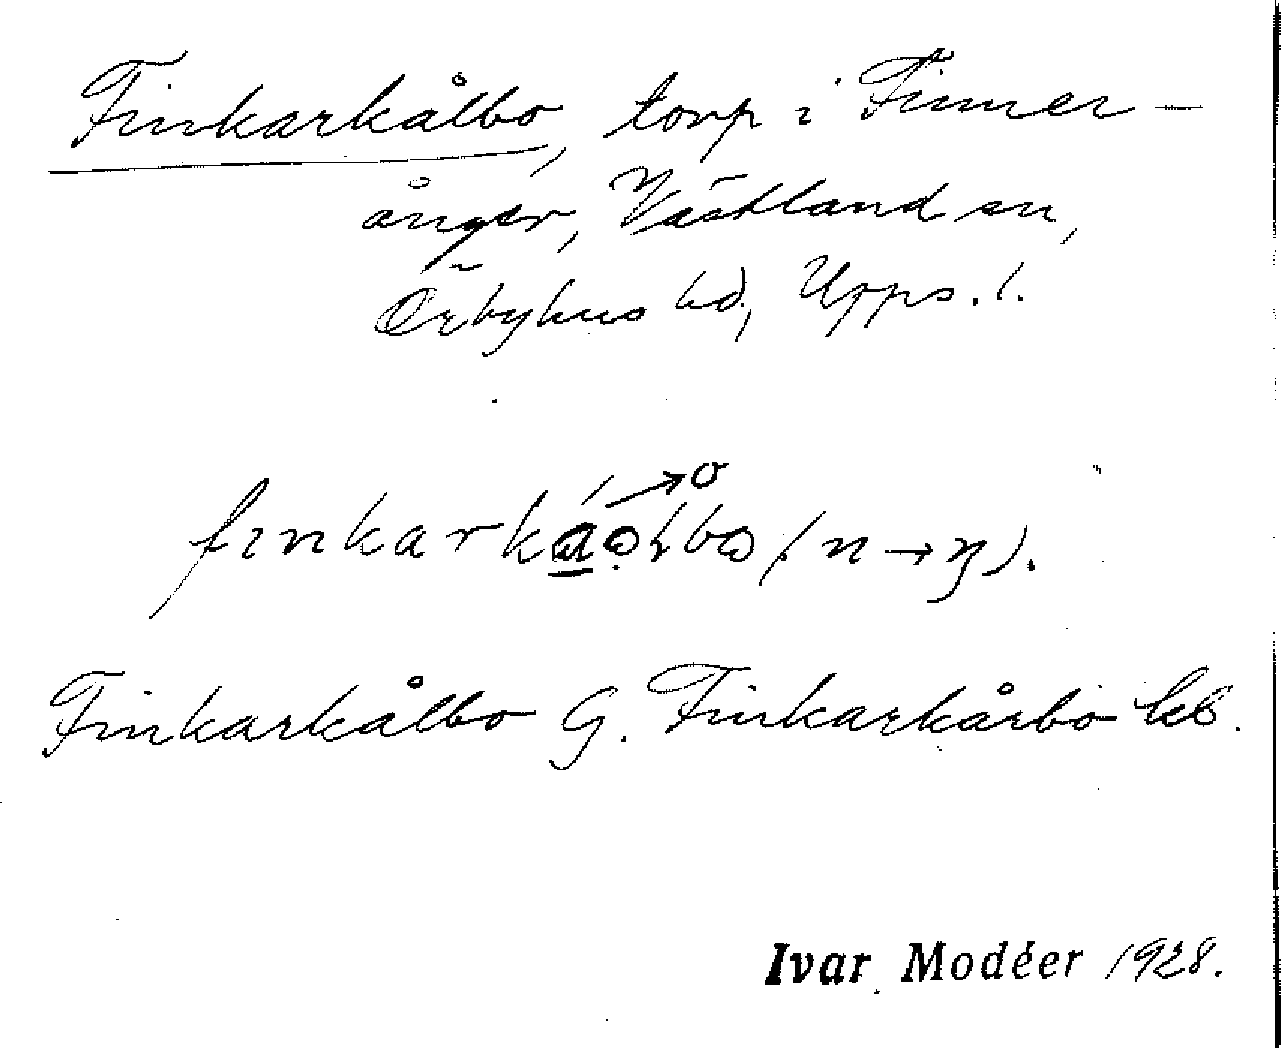 Finkarkålbo, torp i Finner-
ånger, Västland sn,
Örbyhus hd, Upps. l.
Finkarkålbo G. Finkarkårbo kb.
Ivar Modéer 1928.